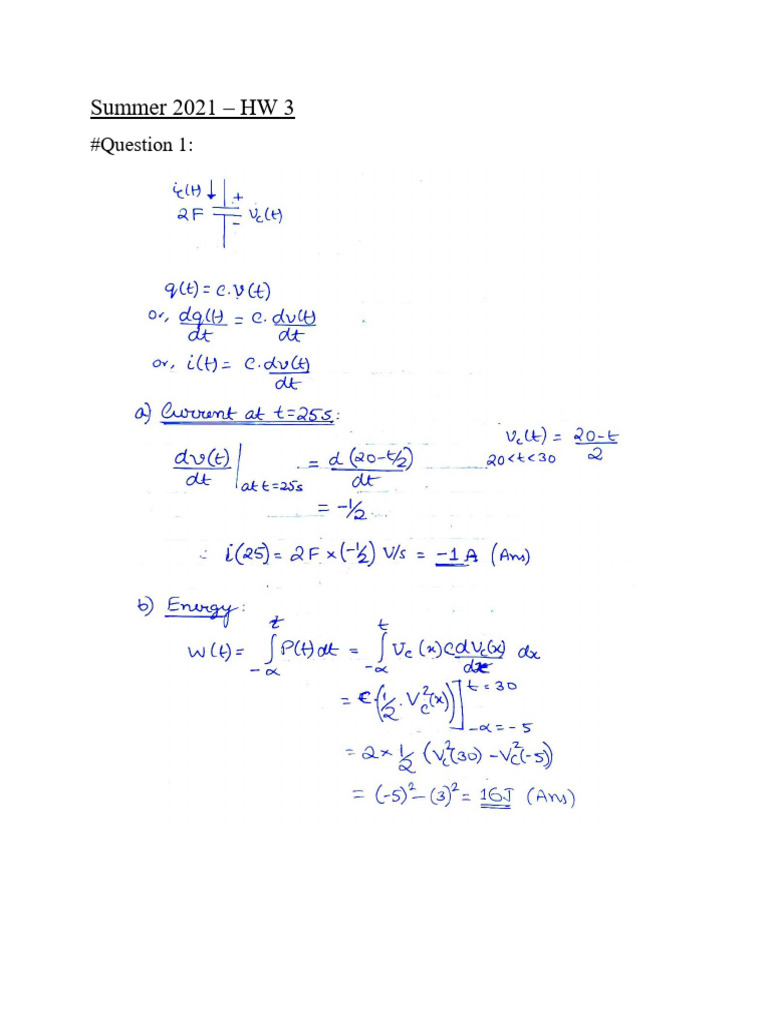 Summer 2021 – HW 3
#Question 1:
ic(t) ↓ +
2F - Vc(t)
q(t) = c.v(t)
or, dq(t)/dt = c. dv(t)/dt
or, i(t) = C.dv(t)/dt
a) Current at t=25s:
Vc(t) = (20-t)/2
20<t<30
dv(t)/dt | at t=25s = d(20-t/2)/dt
= -1/2
∴ i(25) = 2F × (-1/2) V/s = -1 A (Ans)
b) Energy:
W(t) = ∫_{-α}^{t} P(t)dt = ∫_{-α}^{t} Vc(x) C dVc(x)/dx dx
= C(1/2 . Vc²(x))]_{-α=-5}^{t=30}
= 2 × 1/2 (Vc²(30) - Vc²(-5))
= (-5)² - (3)² = 16J (Ans)